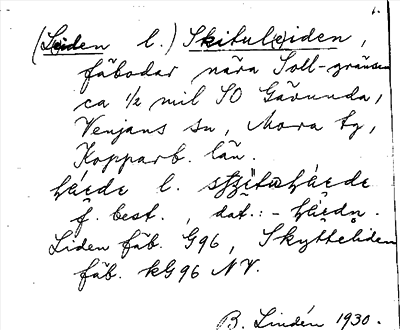 (Leiden l.) Skituleiden,
fäbodar nära Soll-gränsen
ca 1/2 mil SO Gävunda,
Venjans sn, Mora tg,
Kopparb. län.
l.
f. best., dat.: -
Liden fäb. G96, Skytteliden
fäb. kG96 NV.
B. Lindén 1930.